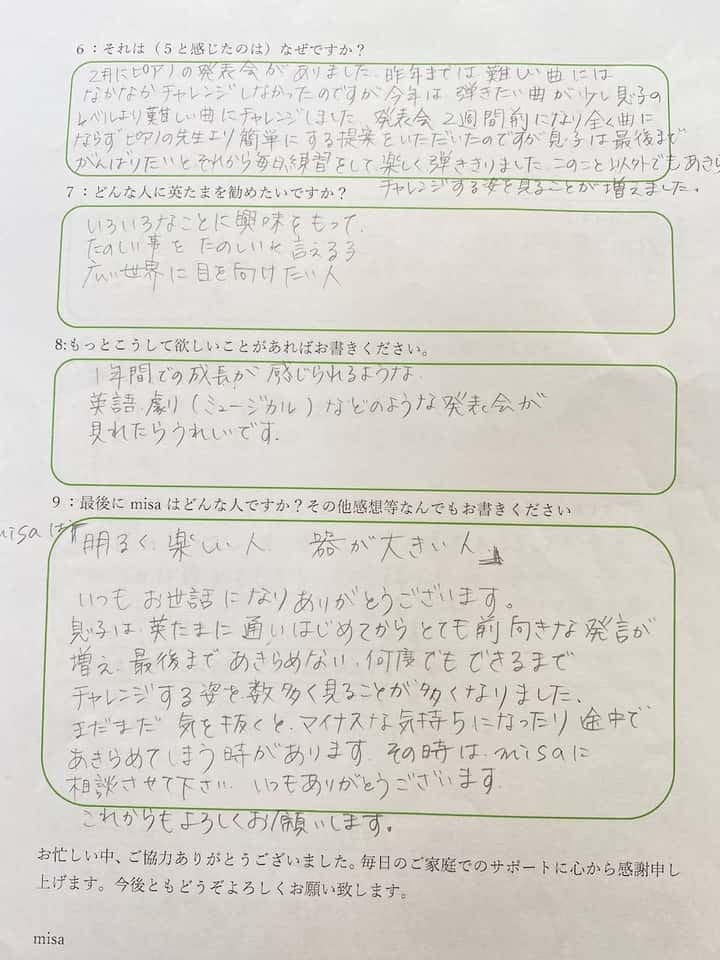 6：それは（5と感じたのは）なぜですか？
2月にピアノの発表会がありました。昨年までは難しい曲には
なかなかチャレンジしなかったのですが今年は弾きたい曲が少し息子の
レベルより難しい曲にチャレンジしました。発表会2週間前になり全く曲に
ならずピアノの先生より簡単にする提案をいただいたのですが息子は最後まで
がんばりたいとそれから毎日練習をして、楽しく弾ききりました。このこと以外でもあきら
チャレンジする姿を見ることが増えました。
7：どんな人に英たまを勧めたいですか？
いろいろなことに興味をもって、
たのしい事をたのしいと言える子
広い世界に目を向けたい人
8:もっとこうして欲しいことがあればお書きください。
1年間での成長が感じられるような、
英語劇（ミュージカル）などのような発表会が
見れたらうれしいです。
9：最後に misa はどんな人ですか？その他感想等なんでもお書きください
misaは
明るく楽しい人 器が大きい人
いつもお世話になりありがとうございます。
息子は、英たまに通いはじめてからとても前向きな発言が
増え、最後まであきらめない、何度でもできるまで
チャレンジする姿を、数多く見ることが多くなりました、
まだまだ気を抜くと、マイナスな気持ちになったり途中で
あきらめてしまう時があります。その時は、misaに
相談させて下さい。いつもありがとうございます。
これからもよろしくお願いします。
お忙しい中、ご協力ありがとうございました。毎日のご家庭でのサポートに心から感謝申し
上げます。今後ともどうぞよろしくお願い致します。
misa